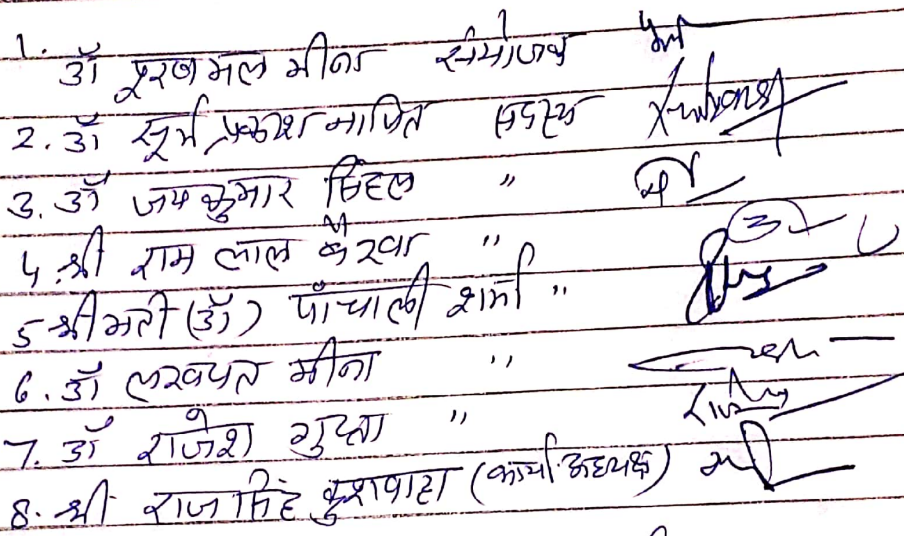 1. डॉ पूरण मल मीना संयोजक
2. डॉ सूर्य प्रकाश नापित सदस्य
3. डॉ जयकुमार सिंहल "
4 श्री राम लाल बैरवा "
5 श्रीमती (डॉ) पाँचाली शर्मा "
6. डॉ लखपत मीना "
7. डॉ राजेश गुप्ता "
8. श्री राज सिंह कुशवाहा (कार्या. अध्यक्ष)